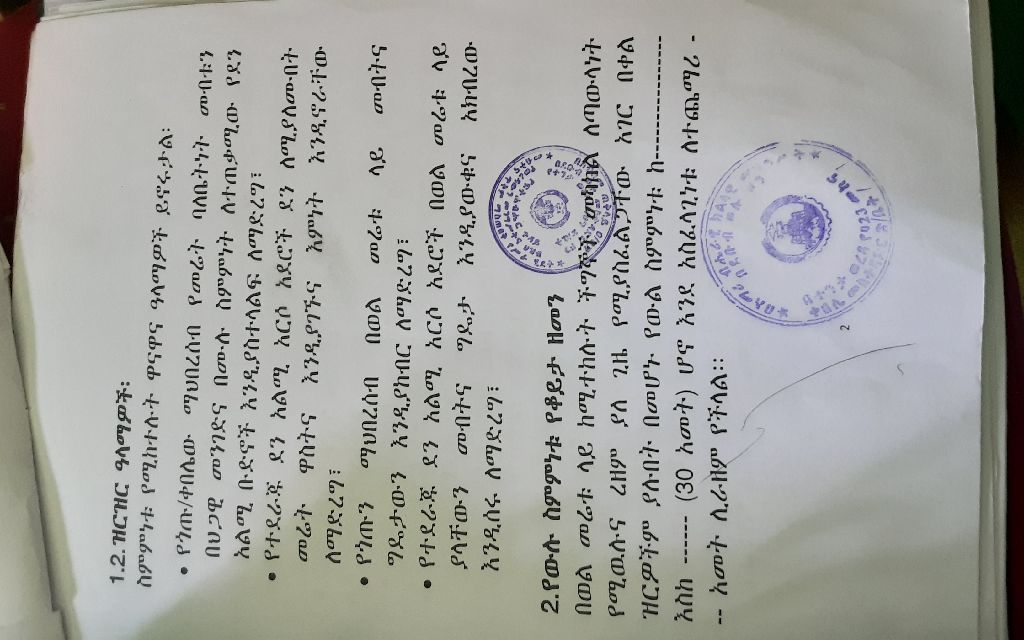 1.2. ዝርዝር ዓላማዎች፡
ስምምነቱ የሚከተሉት ዋናዋና ዓላማዎች ይኖሩታል፡
• የነጡ/ቀበሌው ማህበረሰብ የመሬት ባለቤትነት መብቱን
በህጋዊ መንገድና በሙሉ ስምምነት ለተጠቃሚው የደን
አልሚ ቡድኖች እንዲያስተላልፍ ለማድረግ፣
• የተደራጁ ደን አልሚ አርሶ አደሮች ደን ለሚያለሙበት
መሬት ዋስትና እንዲያገኙና እምነት እንዲኖራቸው
ለማድረግ፣
• የነጡን ማህበረሰብ በወል መሬቱ ላይ መብትና
ግዴታውን እንዲያከብር ለማድረግ፣
• የተደራጁ ደን አልሚ አርሶ አደሮች በወል መሬቱ ላይ
ያላቸውን መብትና ግዴታ እንዲያውቁና አክብረው
እንዲሰሩ ለማድረግ፣
2. የውሉ ስምምነቱ የቆይታ ዘመን
በወል መሬቱ ላይ ከሚተከሉት ችግኞች ለጣውላነት
የሚውሉና ረዘም ያለ ጊዜ የሚያስፈልጋቸው አገር በቀል
ዝርዎችም ያሉበት በመሆኑ የውል ስምምነቱ ከ---------------
እስከ ------ (30 አመት) ሆኖ እንደ አስፈላጊነቱ ለተጨማሪ -
-- አመት ሊራዘም የችላል።
2